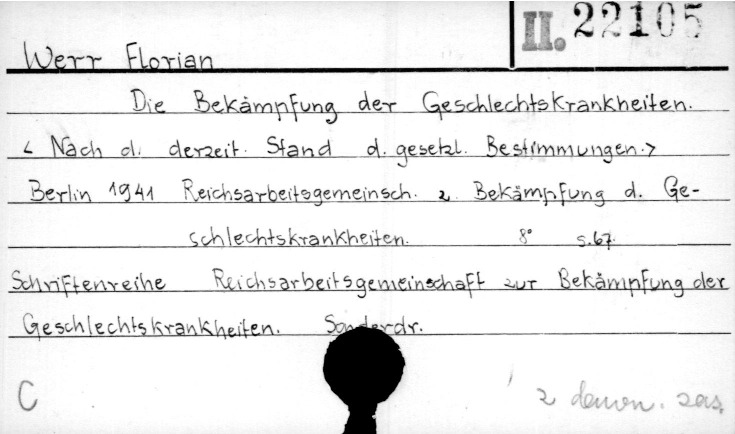 II. 22105
Werr Florian
Die Bekämpfung der Geschlechtskrankheiten.
< Nach d. derzeit. Stand d. gesetzl. Bestimmungen.>
Berlin 1941 Reichsarbeitsgemeinsch. z. Bekämpfung d. Ge-
schlechtskrankheiten. 8° s.67.
Schriftenreihe Reichsarbeitsgemeinschaft zur Bekämpfung der
Geschlechtskrankheiten. Sonderdr.
C z dawn. zas.